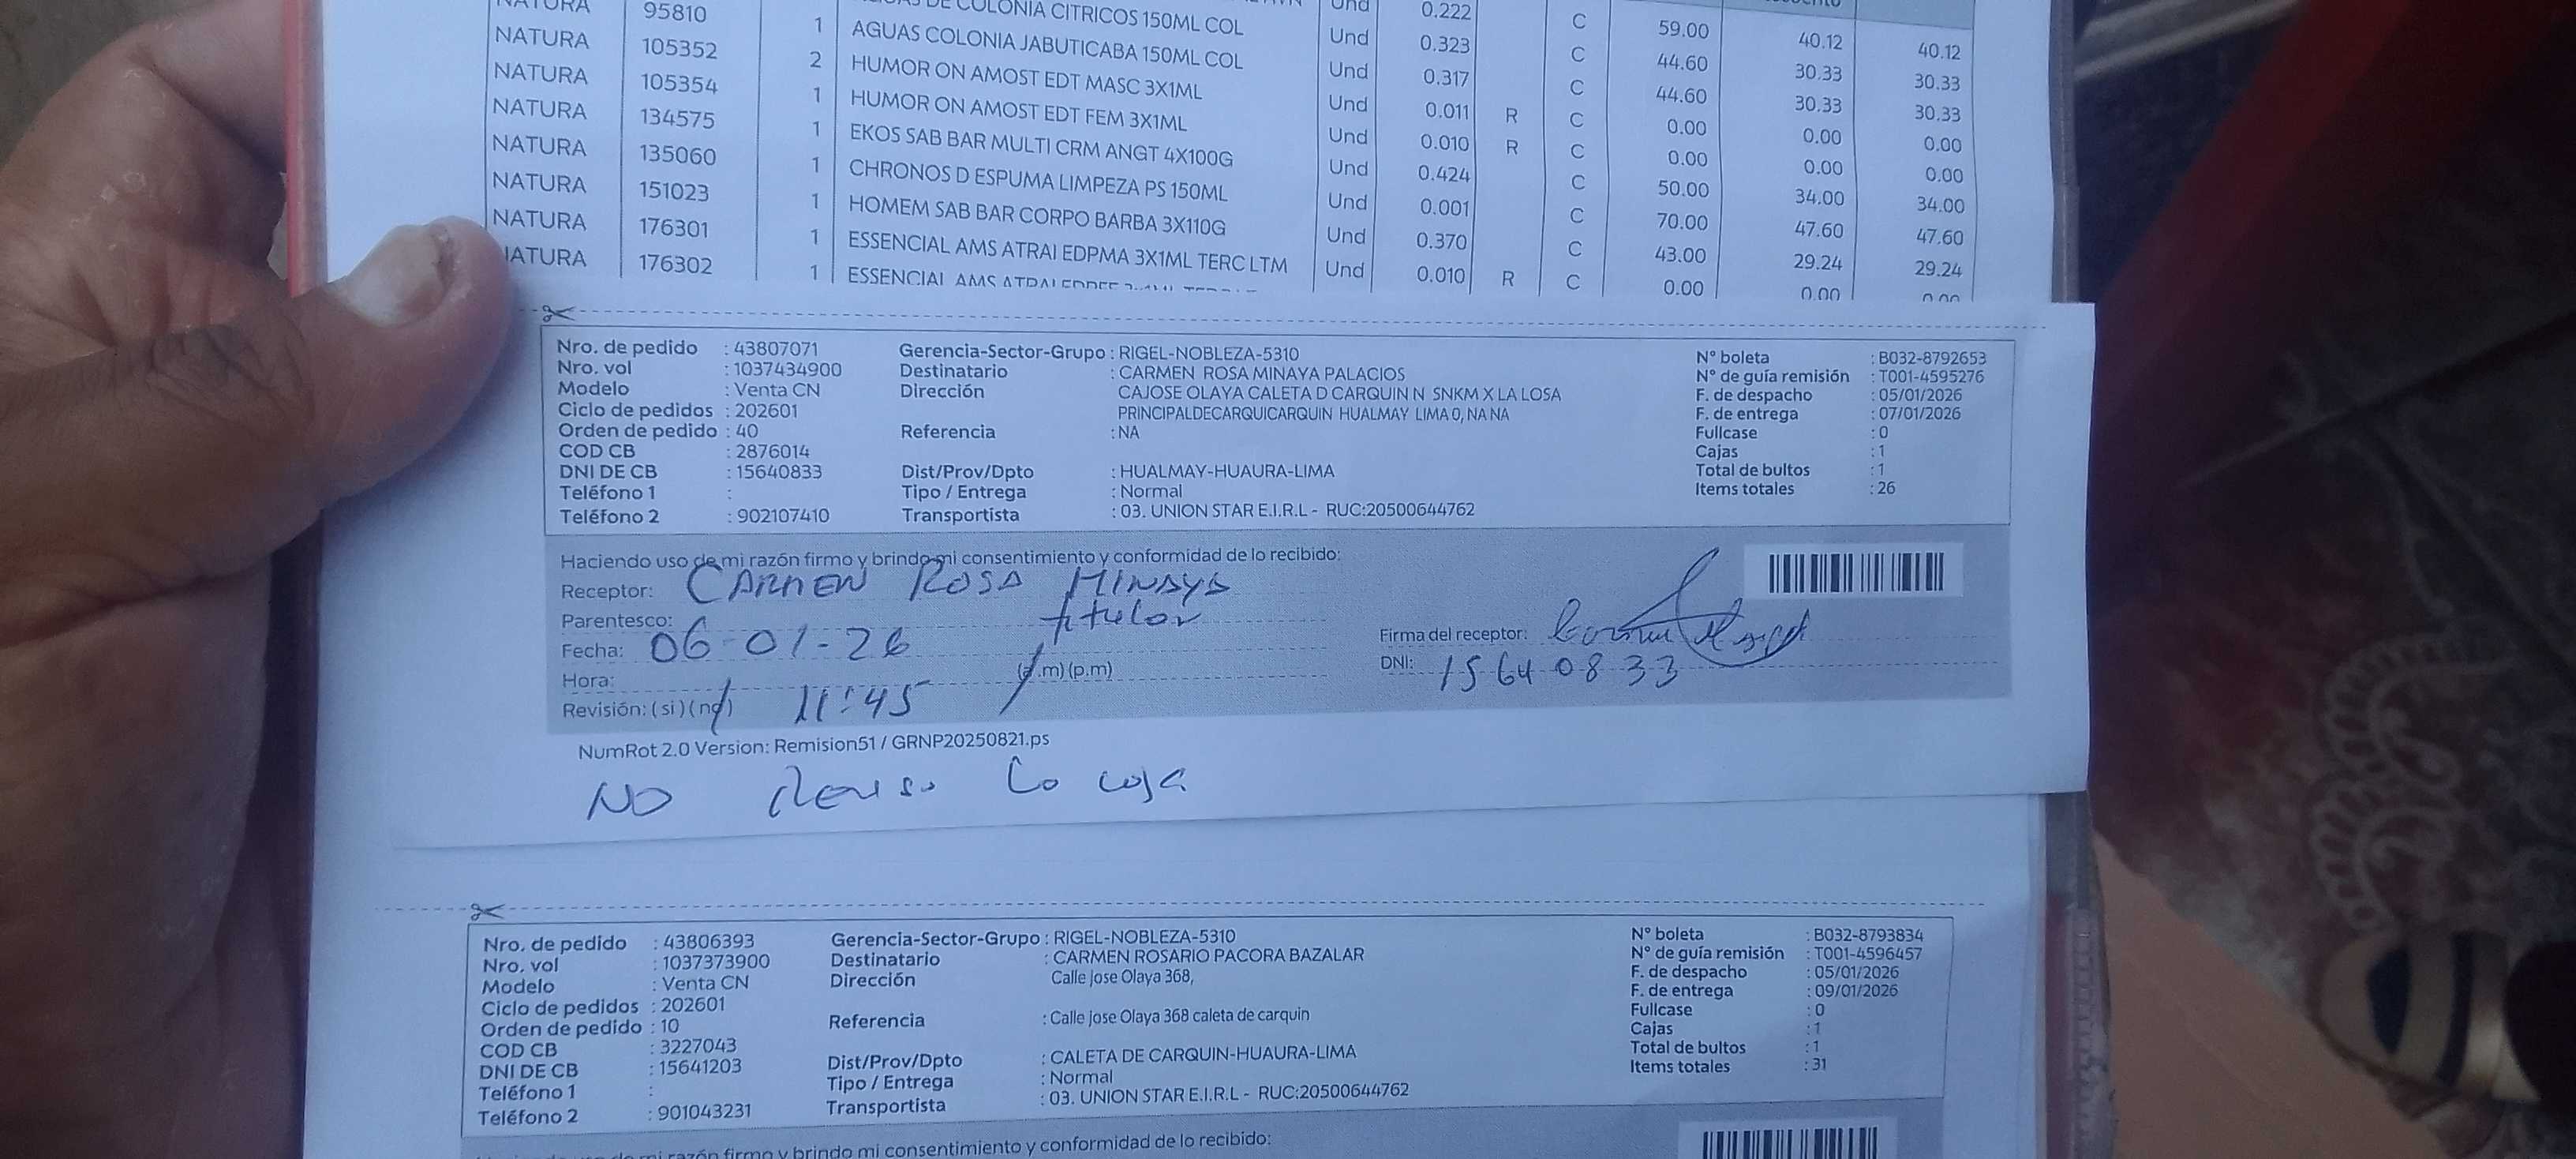 NATURA 95810 1 DE COLONIA CITRICOS 150ML COL Und 0.222 C 59.00 40.12 40.12
NATURA 105352 2 AGUAS COLONIA JABUTICABA 150ML COL Und 0.323 C 44.60 30.33 30.33
NATURA 105354 1 HUMOR ON AMOST EDT MASC 3X1ML Und 0.317 C 44.60 30.33 30.33
NATURA 134575 1 HUMOR ON AMOST EDT FEM 3X1ML Und 0.011 R C 0.00 0.00 0.00
NATURA 135060 1 EKOS SAB BAR MULTI CRM ANGT 4X100G Und 0.010 R C 0.00 0.00 0.00
NATURA 151023 1 CHRONOS D ESPUMA LIMPEZA PS 150ML Und 0.424 C 50.00 34.00 34.00
NATURA 176301 1 HOMEM SAB BAR CORPO BARBA 3X110G Und 0.001 C 70.00 47.60 47.60
NATURA 176302 1 ESSENCIAL AMS ATRAI EDPMA 3X1ML TERC LTM Und 0.370 C 43.00 29.24 29.24
ESSENCIAL AMS ATRAI Und 0.010 R C 0.00 0.00 0.00
Nro. de pedido : 43807071 Gerencia-Sector-Grupo : RIGEL-NOBLEZA-5310 N° boleta : B032-8792653
Nro. vol : 1037434900 Destinatario : CARMEN ROSA MINAYA PALACIOS N° de guía remisión : T001-4595276
Modelo : Venta CN Dirección CAJOSE OLAYA CALETA D CARQUIN N SNKM X LA LOSA F. de despacho : 05/01/2026
Ciclo de pedidos : 202601 PRINCIPALDECARQUICARQUIN HUALMAY LIMA 0, NA NA F. de entrega : 07/01/2026
Orden de pedido : 40 Referencia : NA Fullcase : 0
COD CB : 2876014 Cajas : 1
DNI DE CB : 15640833 Dist/Prov/Dpto : HUALMAY-HUAURA-LIMA Total de bultos : 1
Teléfono 1 : Tipo / Entrega : Normal Items totales : 26
Teléfono 2 : 902107410 Transportista : 03. UNION STAR E.I.R.L - RUC:20500644762
Haciendo uso de mi razón firmo y brindo mi consentimiento y conformidad de lo recibido:
Receptor: CARMEN ROSA MINAYA
Parentesco: titular
Fecha: 06-01-26 Firma del receptor:
Hora: (a.m) (p.m) DNI: 15640833
Revisión: (si) (no) 11:45
NumRot 2.0 Version: Remision51 / GRNP20250821.ps
NO Reviso La caja
Nro. de pedido : 43806393 Gerencia-Sector-Grupo : RIGEL-NOBLEZA-5310 N° boleta : B032-8793834
Nro. vol : 1037373900 Destinatario : CARMEN ROSARIO PACORA BAZALAR N° de guía remisión : T001-4596457
Modelo : Venta CN Dirección Calle jose Olaya 368, F. de despacho : 05/01/2026
Ciclo de pedidos : 202601 F. de entrega : 09/01/2026
Orden de pedido : 10 Referencia : Calle jose Olaya 368 caleta de carquin Fullcase : 0
COD CB : 3227043 Cajas : 1
DNI DE CB : 15641203 Dist/Prov/Dpto : CALETA DE CARQUIN-HUAURA-LIMA Total de bultos : 1
Teléfono 1 : Tipo / Entrega : Normal Items totales : 31
Teléfono 2 : 901043231 Transportista : 03. UNION STAR E.I.R.L - RUC:20500644762
de mi razón firmo y brindo mi consentimiento y conformidad de lo recibido: